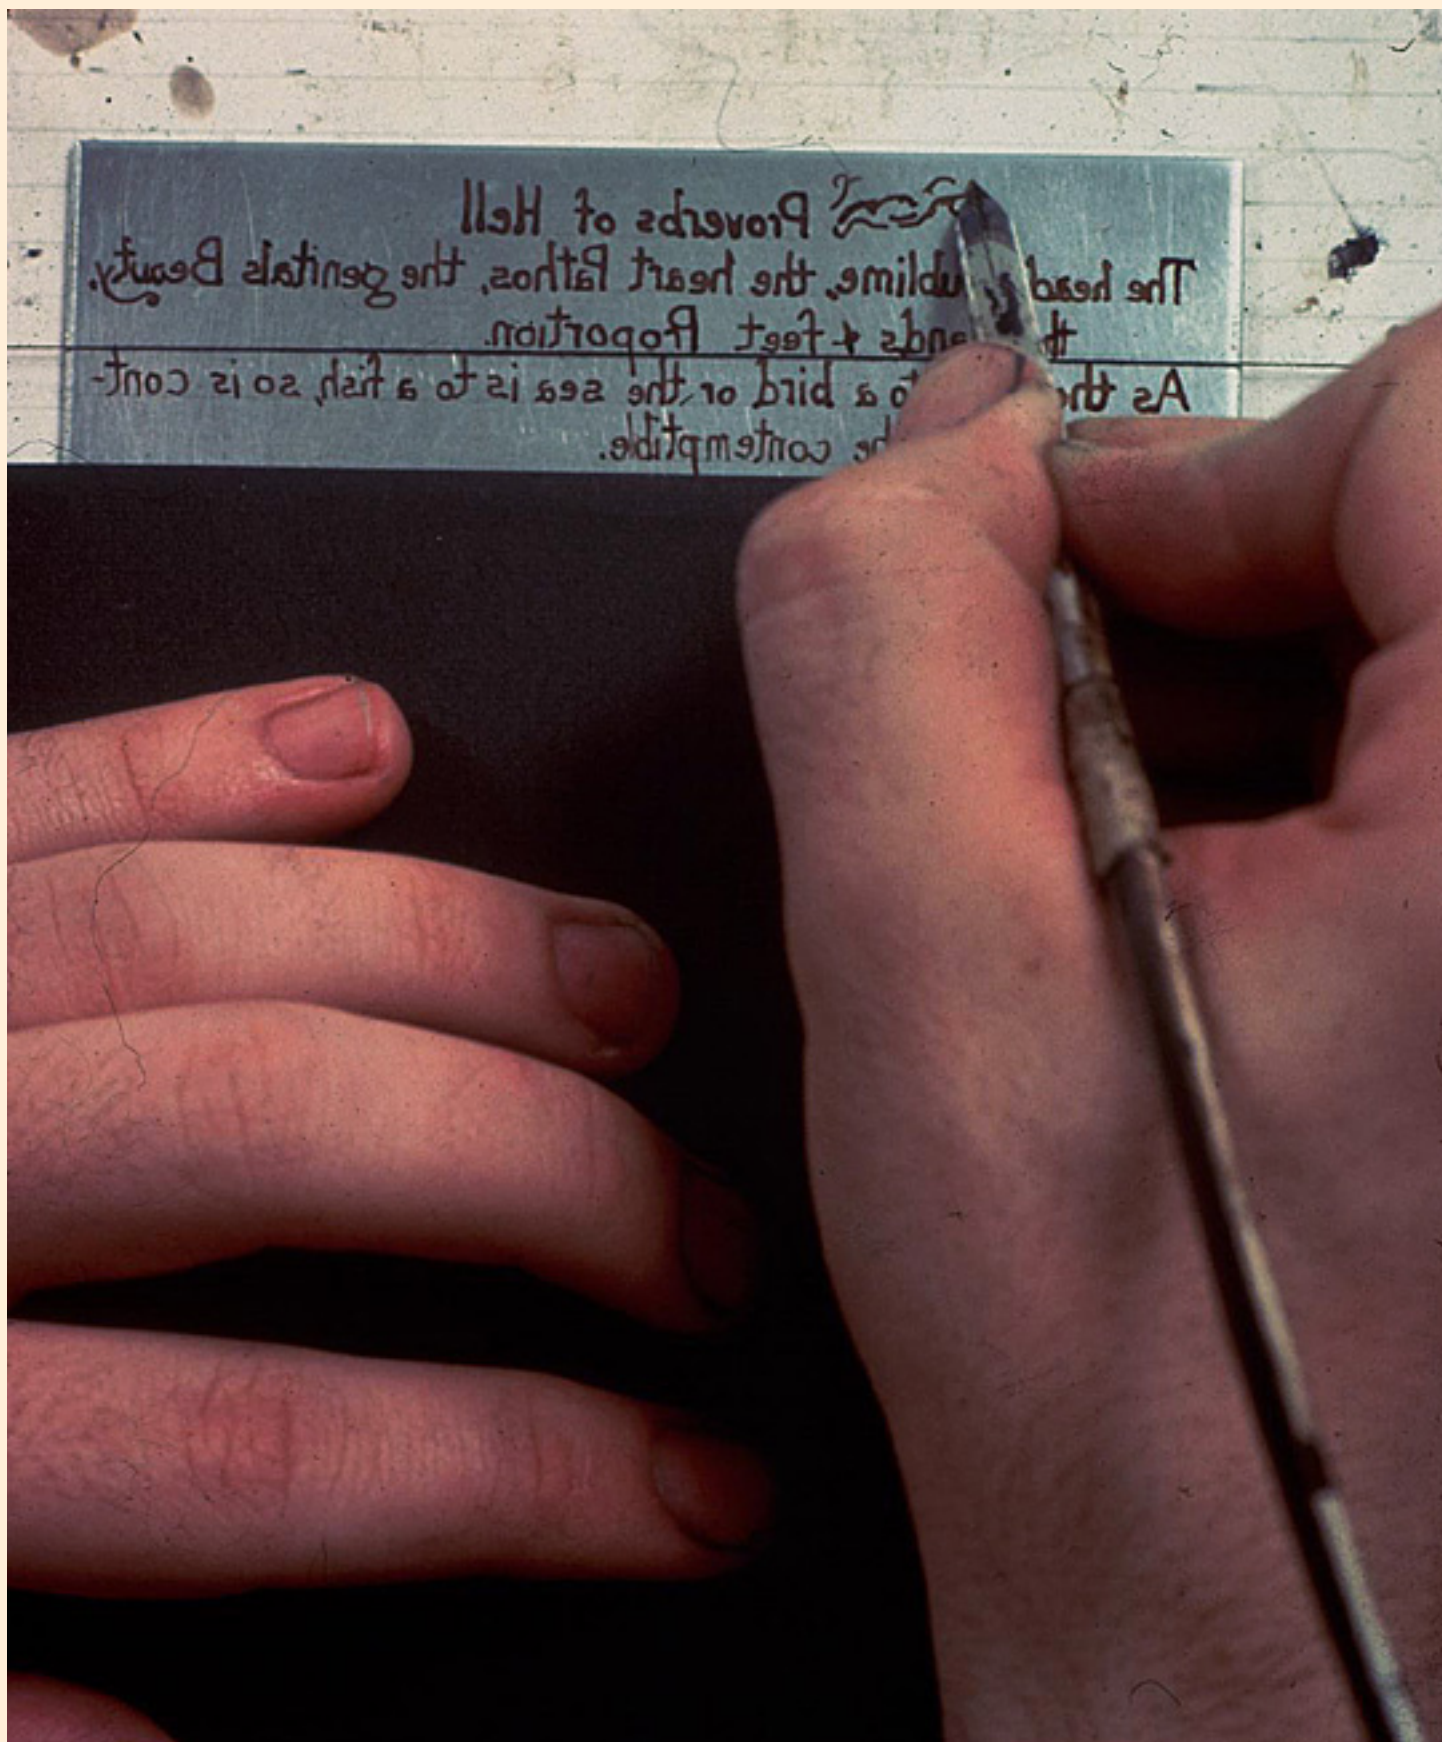 Proverbs of Hell
The head ublime, the heart Pathos, the genitals Beauty,
th ands & feet Proportion.
As the to a bird or the sea is to a fish, so is cont-
he contemptible.